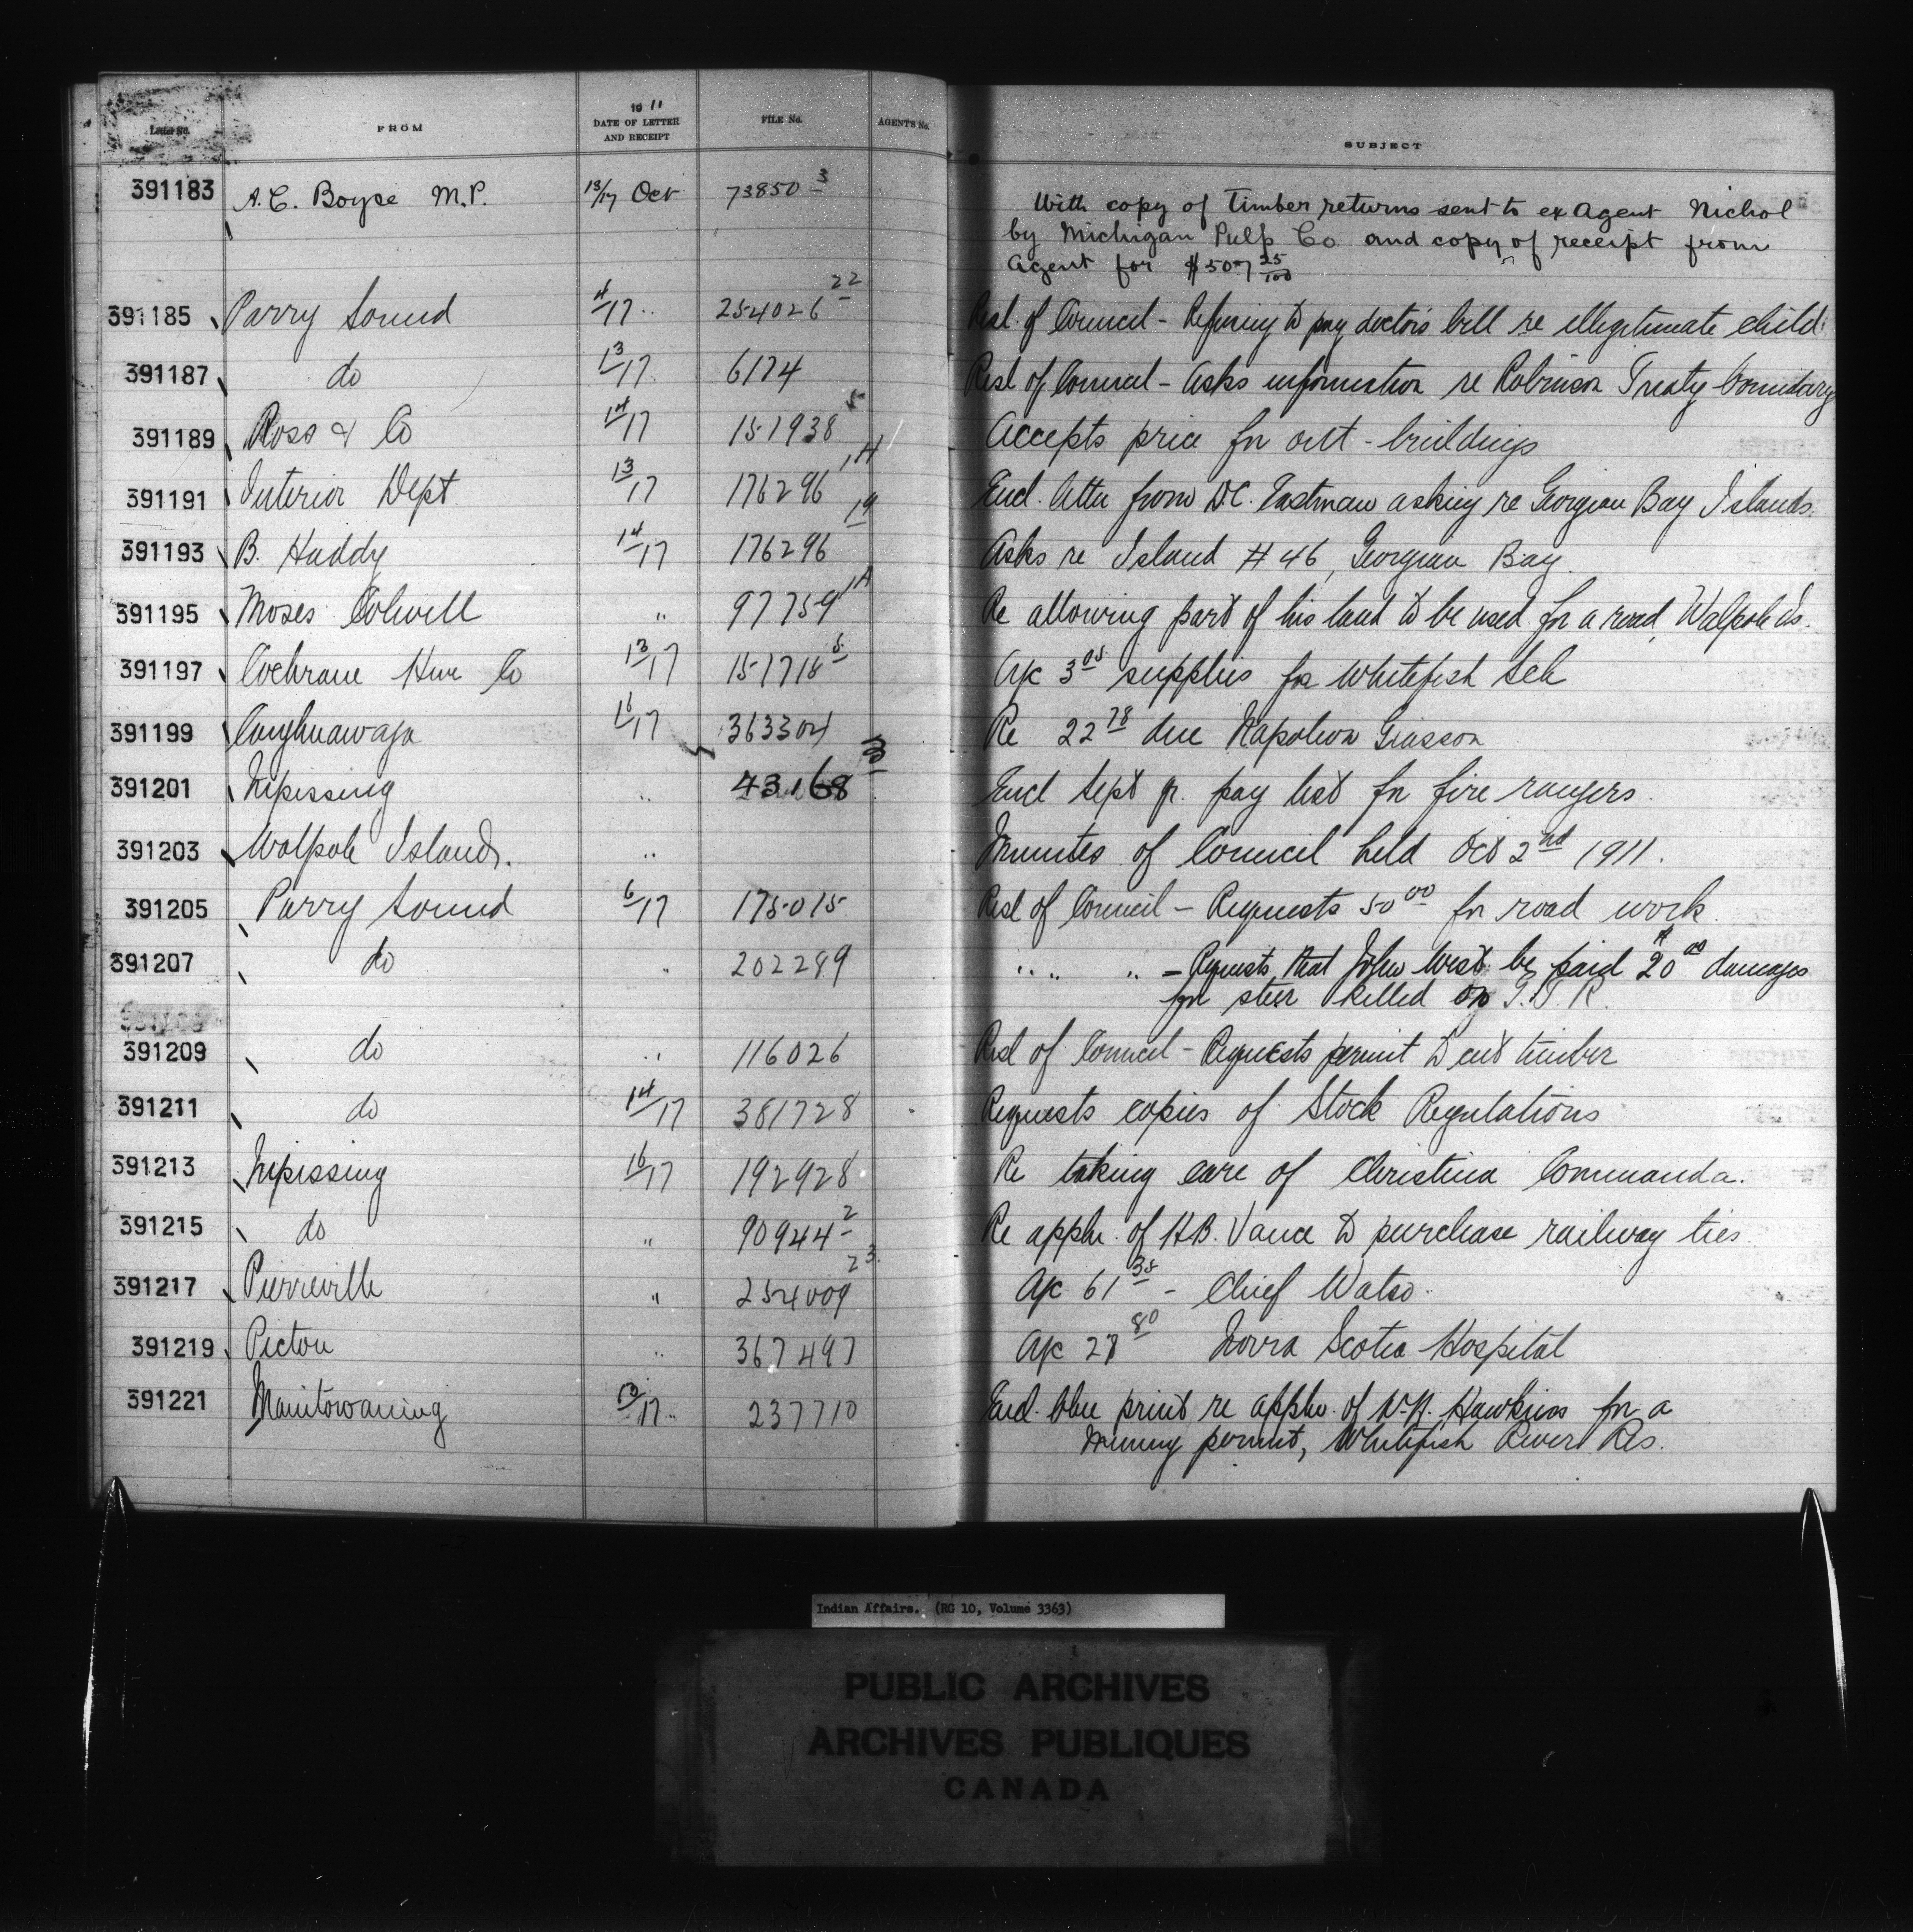 Letter No. FROM 1911 DATE OF LETTER AND RECEIPT FILE No. AGENT'S No. SUBJECT
391183 A.C. Boyce M.P. 13/17 Oct 73850-3 With copy of Timber returns sent to ex Agent Nichol
by Michigan Pulp Co and copy of receipt from
Agent for $507 25/100
391185 Parry Sound 4/17 " 254026-22 Resl. of Council - Refusing to pay doctor's bill re illegitimate child
391187 do 13/17 6174 Resl of Council - Asks information re Robinson Treaty boundary
391189 Ross & Co 14/17 151938-5 Accepts price for out-buildings
391191 Interior Dept 13/17 176296-1A Encl. letter from D.C. Eastman asking re Georgian Bay Islands
391193 B. Huddy 14/17 176296-19 Asks re Island #46, Georgian Bay.
391195 Moses Colwell " 97759-1A Re allowing part of his land to be used for a road, Walpole Is.
391197 Cochrane Hwe Co 13/17 151718-5 A/c 3.05 supplies for Whitefish Sch
391199 Caughnawaga 16/17 363304 Re 22.78 due Napoleon Giasson
391201 Nipissing " 43168 Encl Sept qr. pay list for fire rangers.
391203 Walpole Islands. " Minutes of Council held Oct 2nd 1911.
391205 Parry Sound 6/17 175015 Resl of Council - Requests 50.00 for road work.
391207 do " 202289 " " " - Requests that John West be paid $20.00 damages
for steer killed on G.T.R.
391209 do " 116026 Resl of Council - Requests permit to cut timber
391211 do 14/17 381728 Requests copies of Stock Regulations
391213 Nipissing 16/17 192928 Re taking care of Christina Commanda.
391215 do " 90944-2 Re appln. of H.B. Vance to purchase railway ties
391217 Pierreville " 254009-23 A/c 61.35 - Chief Watso
391219 Pictou " 367497 A/c 28.80 Nova Scotia Hospital
391221 Manitowaning 13/17 " 237710 Encl. blue print re appln. of W.R. Hawkins for a
mining permit, Whitefish River Res.
Indian Affairs. (RG 10, Volume 3363)
PUBLIC ARCHIVES
ARCHIVES PUBLIQUES
CANADA